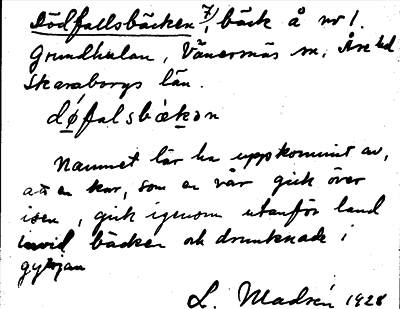 Dödfallsbäcken 7/, bäck å nr 1.
Grundkulan, Vänersnäs sn, Åse hd
Skaraborgs län.
døfalsbækən
Namnet lär ha uppkommit av,
att en kar, som en vår gick över
isen, gick igenom utanför land
invid bäcken och drunknade i
gyttjan
L. Madsén 1928